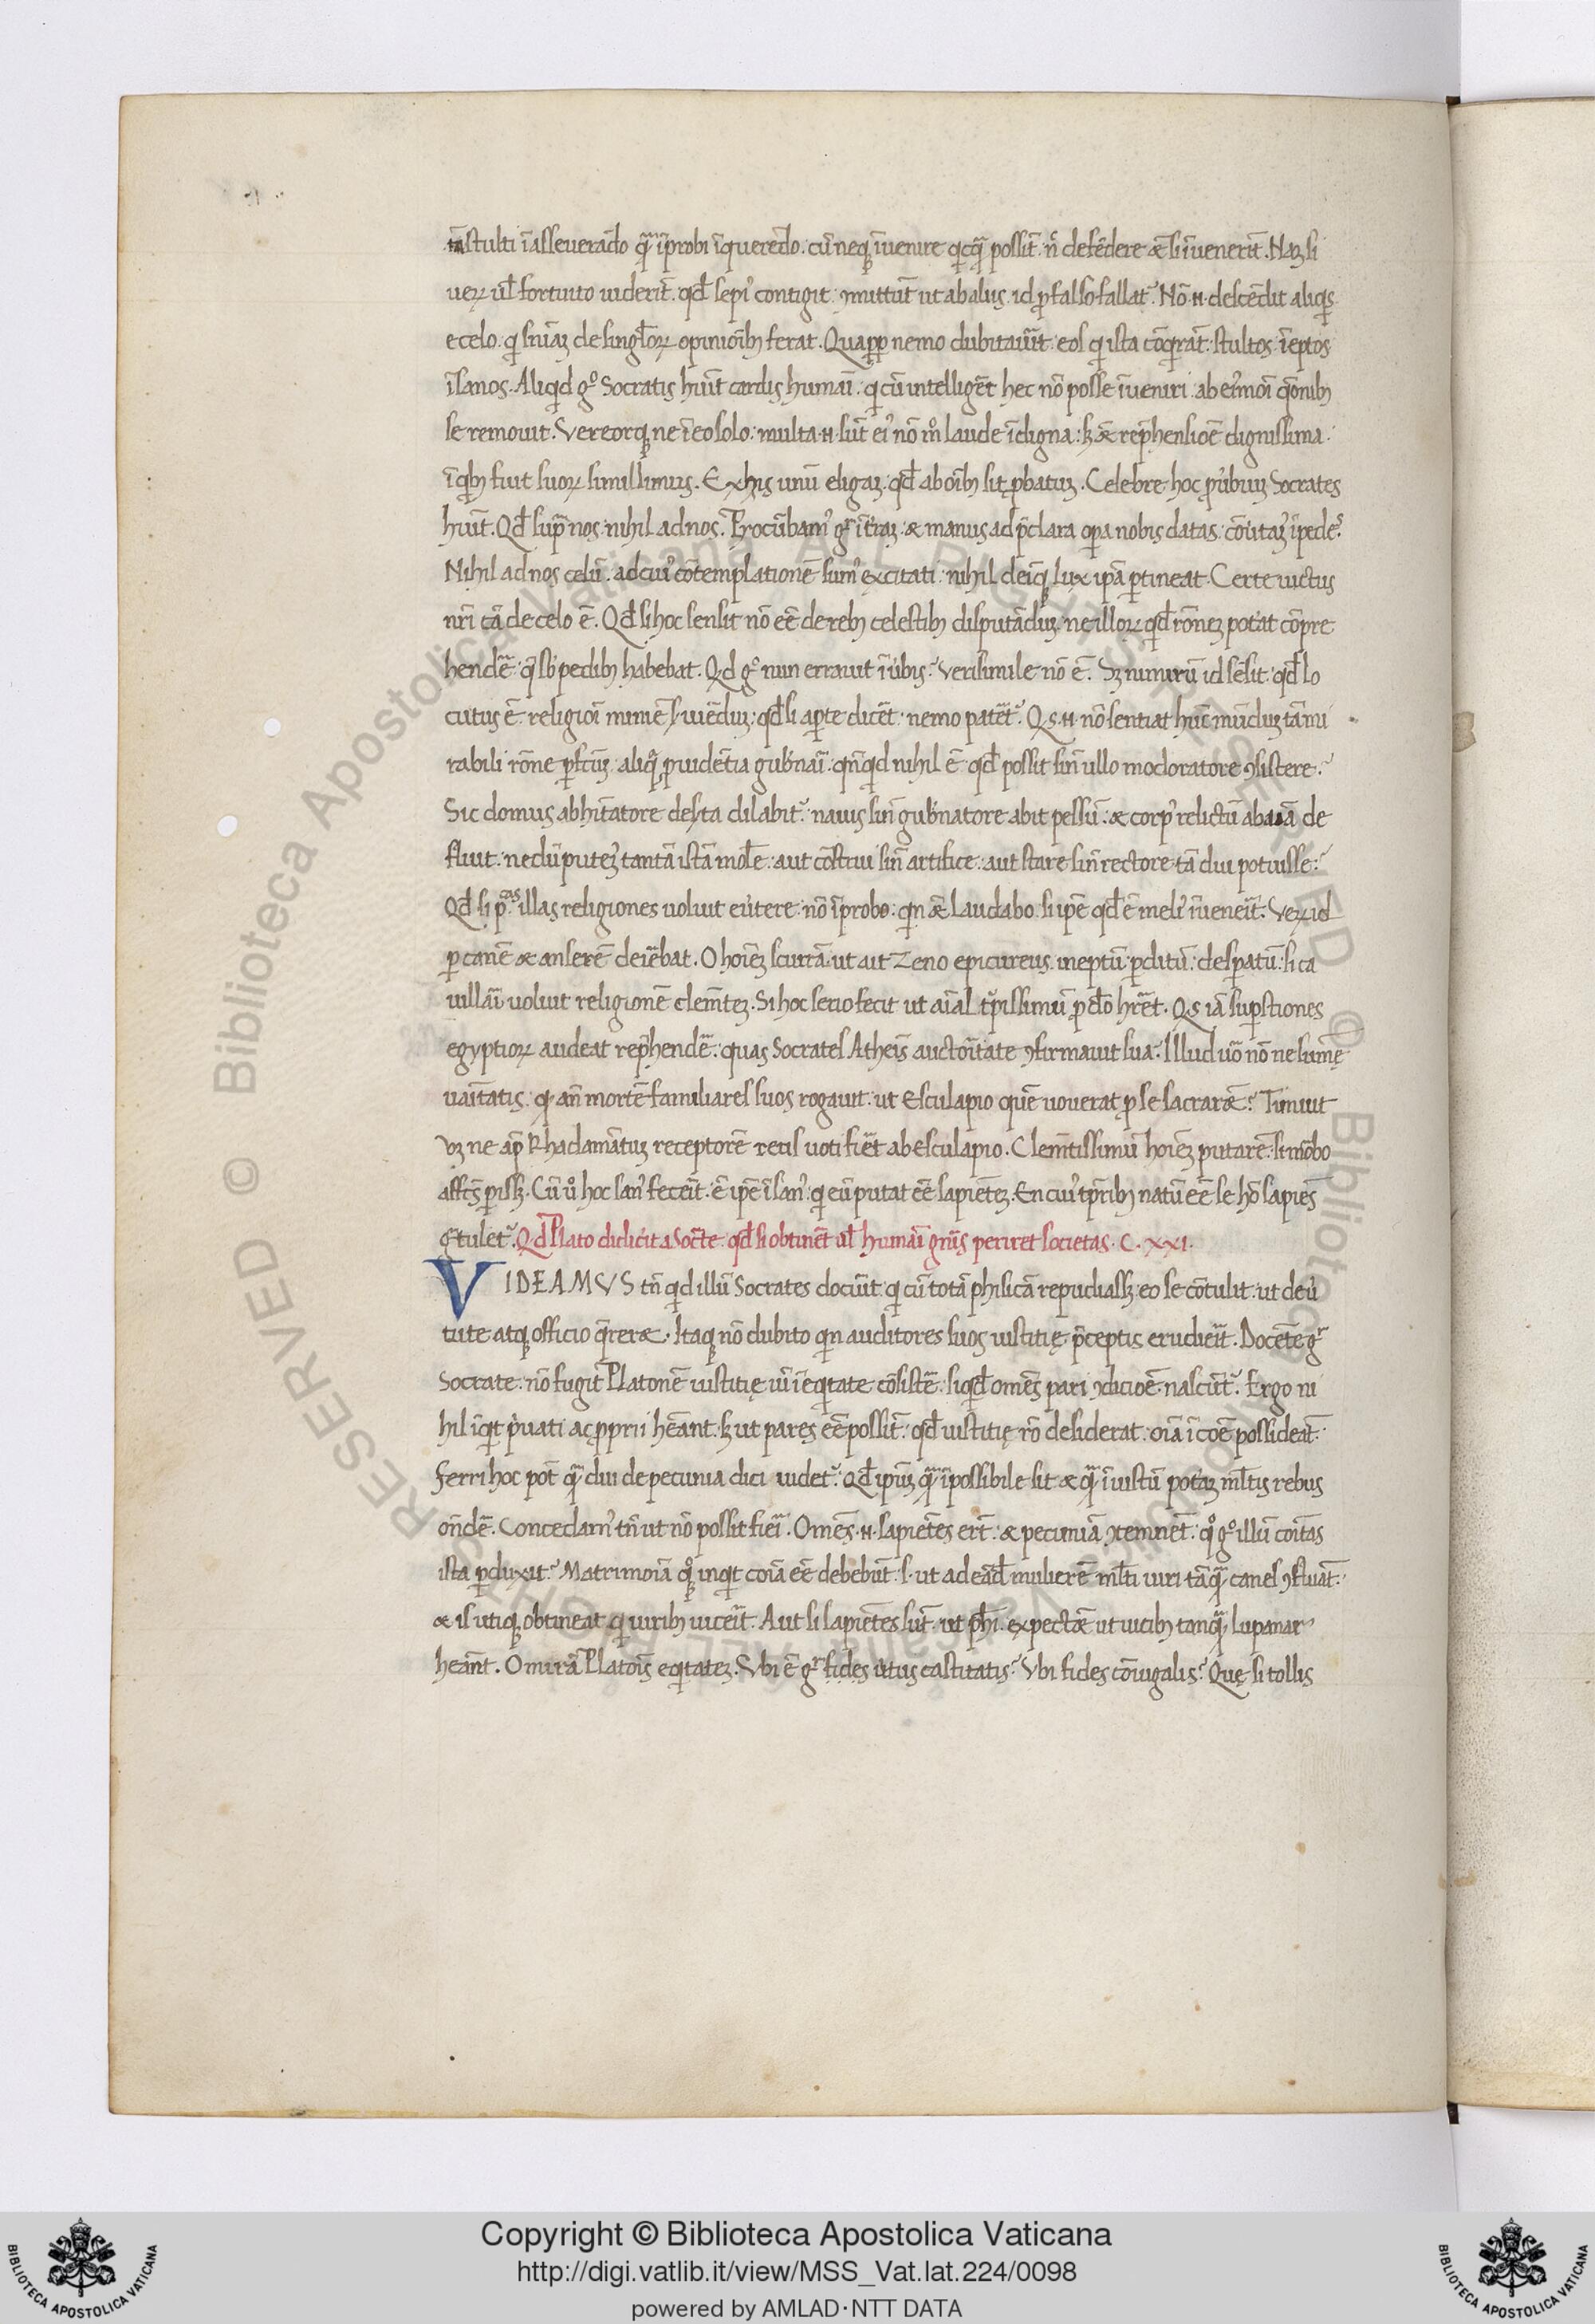 tā stulti ī asseverādo q̄ īprobi ī querēdo. cū neq; īvenire qcq̄ possīt. n̄ defēdere æ si īvenerīt. Naʒ si
ueꝝ ul̄ fortuito viderīt. qd̄ sepi9 contigit. mittūt ut ab aliis id ꝓ falso fallat᷑. Nō .n. descēdit aliqs
e celo. qi sniaʒ de singl̄oꝝ opinioīb; ferat. Quaꝓp nemo dubitau̇it eos qi ista cōqrāt. stultos. īeptos
īsanos. Aliqd g° Socrates huīt cordis humāi. qi cū intelligēt hec nō posse īveniri. ab ei9moi qōnib;
se removit. Vereorq; ne ī eo solo. multa .n. sūt ei9 nō mō laude īdigna: sʒ æ rep̄hensiōe dignissima.
ī qb; fuit suoꝝ simillimus. Ex his unū eligaʒ. qd̄ ab oīb; sit ꝓbatuʒ. Celebre hoc ꝓverbiuʒ Socrates
huīt. Qd̄ sup̄ nos nihil ad nos. Procūbam9 g° ī tr̄aʒ. æ manus ad p̄clara oꝑa nobis datas. cōvtaʒ9 ī pedes.
Nihil ad nos celū. ad cui9 cōtemplationē sum9 excitati. nihil deiq; lux ip̄a ꝑtineat. Certe victus
nr̄i cā de celo ē. Qd̄ si hoc sensit nō eē de reb; celestib; disputādū. ne illoꝝ qd̄ rōneʒ potat cōpre
hendē. q̄ sb pedib; habebat. Qd g° nun erravit ī ūbis? verisimile nō ē. Sʒ nimirū id sēsit. qd̄ lo
cutus ē. religiōi minie sviēduʒ. qd̄ si aꝑte dicēt. nemo patēt᷑. Qs .n. nō sentiat hūc mūduʒ tā mi
rabili rōne ꝑfcūʒ. aliq̄ ꝓvidētia gub̄nāi. qn̄qd nihil ē qd̄ possit sin̄ ullo moderatore ꝯsistere.
Sic domus ab hītatore deserta dilabit᷑. navis sin̄ gub̄natore abit pessū. æ corp9 relictū ab aīa de
fluit. nedū puteʒ9 tantā istā molē. aut cōstrui sin̄ artifice. aut stare sin̄ rectore tā diu potuisse.
Qd̄ si pcas illas religiones voluit ev̄tere. nō īprobo. qn æ laudabo. si ip̄e qd̄ ē meli9 īveneit. Veꝝ id
ꝑ canē æ anserē deiēbat. O hoīeʒ scurrā. ut ait Zeno epicureus. ineptū. ꝑditū. desꝑatū. si ca
villāi voluit religionē. demēteʒ. Si hoc serio fecit. ut aīal t̄pissimū ꝓ dō hr̄et. Qs iā suꝑstiones
egyptioꝝ audeat rep̄hendē. quas Socrates Athenis auctoritate ꝯfirmavit sua. Illud uō nōne sume
vaītatis. qi an̄ mortē familiares suos rogavit. ut Esculapio quē voverat ꝓ se sacraræ? Timuit
vʒ ne ap̄ Rhadamātuʒ receptorē retis voti fiēt ab Esculapio. Clemētissimū hoīeʒ putarē. si mobo
affc̄s ꝑisʒ. Cū ů hoc san9 feceīt. ē ip̄e īsan9. qi eū putat eē sapiēteʒ. En cui9 tꝑrib; natū eē se hō sapies
gtulet᷑. Qd̄ Plato didicit a Socte. qd̄ si obtinēt ul̄ humāi gnīs periret societas. C. XXI.
VIDEAMVS tn̄ qd illū Socrates docūit. qi cū totā phisicā repudiassʒ. eo se cōtulit. ut de v
tute atq; officio q̄reræ. Itaq; nō dubito qn auditores suos iustitię p̄ceptis erudieīt. Docēte g°
Socrate. nō fugit Platonē iustitię vī ī eqtate cōsistē. siqd̄ omēs pari ꝯdiciōe nascūt᷑. Ergo ni
hil īqt p̄vati ac ꝓprii hēant. sʒ ut pares eē possīt. qd̄ iustitię rō desiderat. oīa ī coē possideāt.
Ferri hoc pōt q̄ diu de pecunia dici videt᷑. Qd̄ ip̄uʒ q̄ īpossibile sit æ q̄ īiustū potaʒ ml̄tis rebus
on̄dē. Concedam9 tn̄ ut nō possit fiēi. Omēs .n. sapiētes erīt. æ pecuniā ꝯtemnēt. q° g° illū coītas
ista ꝑduxit? Matrimonia q° inqt coīa eē debebūt. s. ut ad eād̄ mulierē ml̄ti viri tāq̄ canes ꝯfluāt.
æ is utiq; obtineat qi virib; viceīt. Aut si sapiētes sūt. ut phi. expectæ ut vicib; tanq̄ lupanar
heānt. O mirā Platōis eqtateʒ. Vbi ē g° fides v̇tus castitatis? Vbi fides cōiugalis? Quę si tollis
Copyright © Biblioteca Apostolica Vaticana
http://digi.vatlib.it/view/MSS_Vat.lat.224/0098
powered by AMLAD·NTT DATA